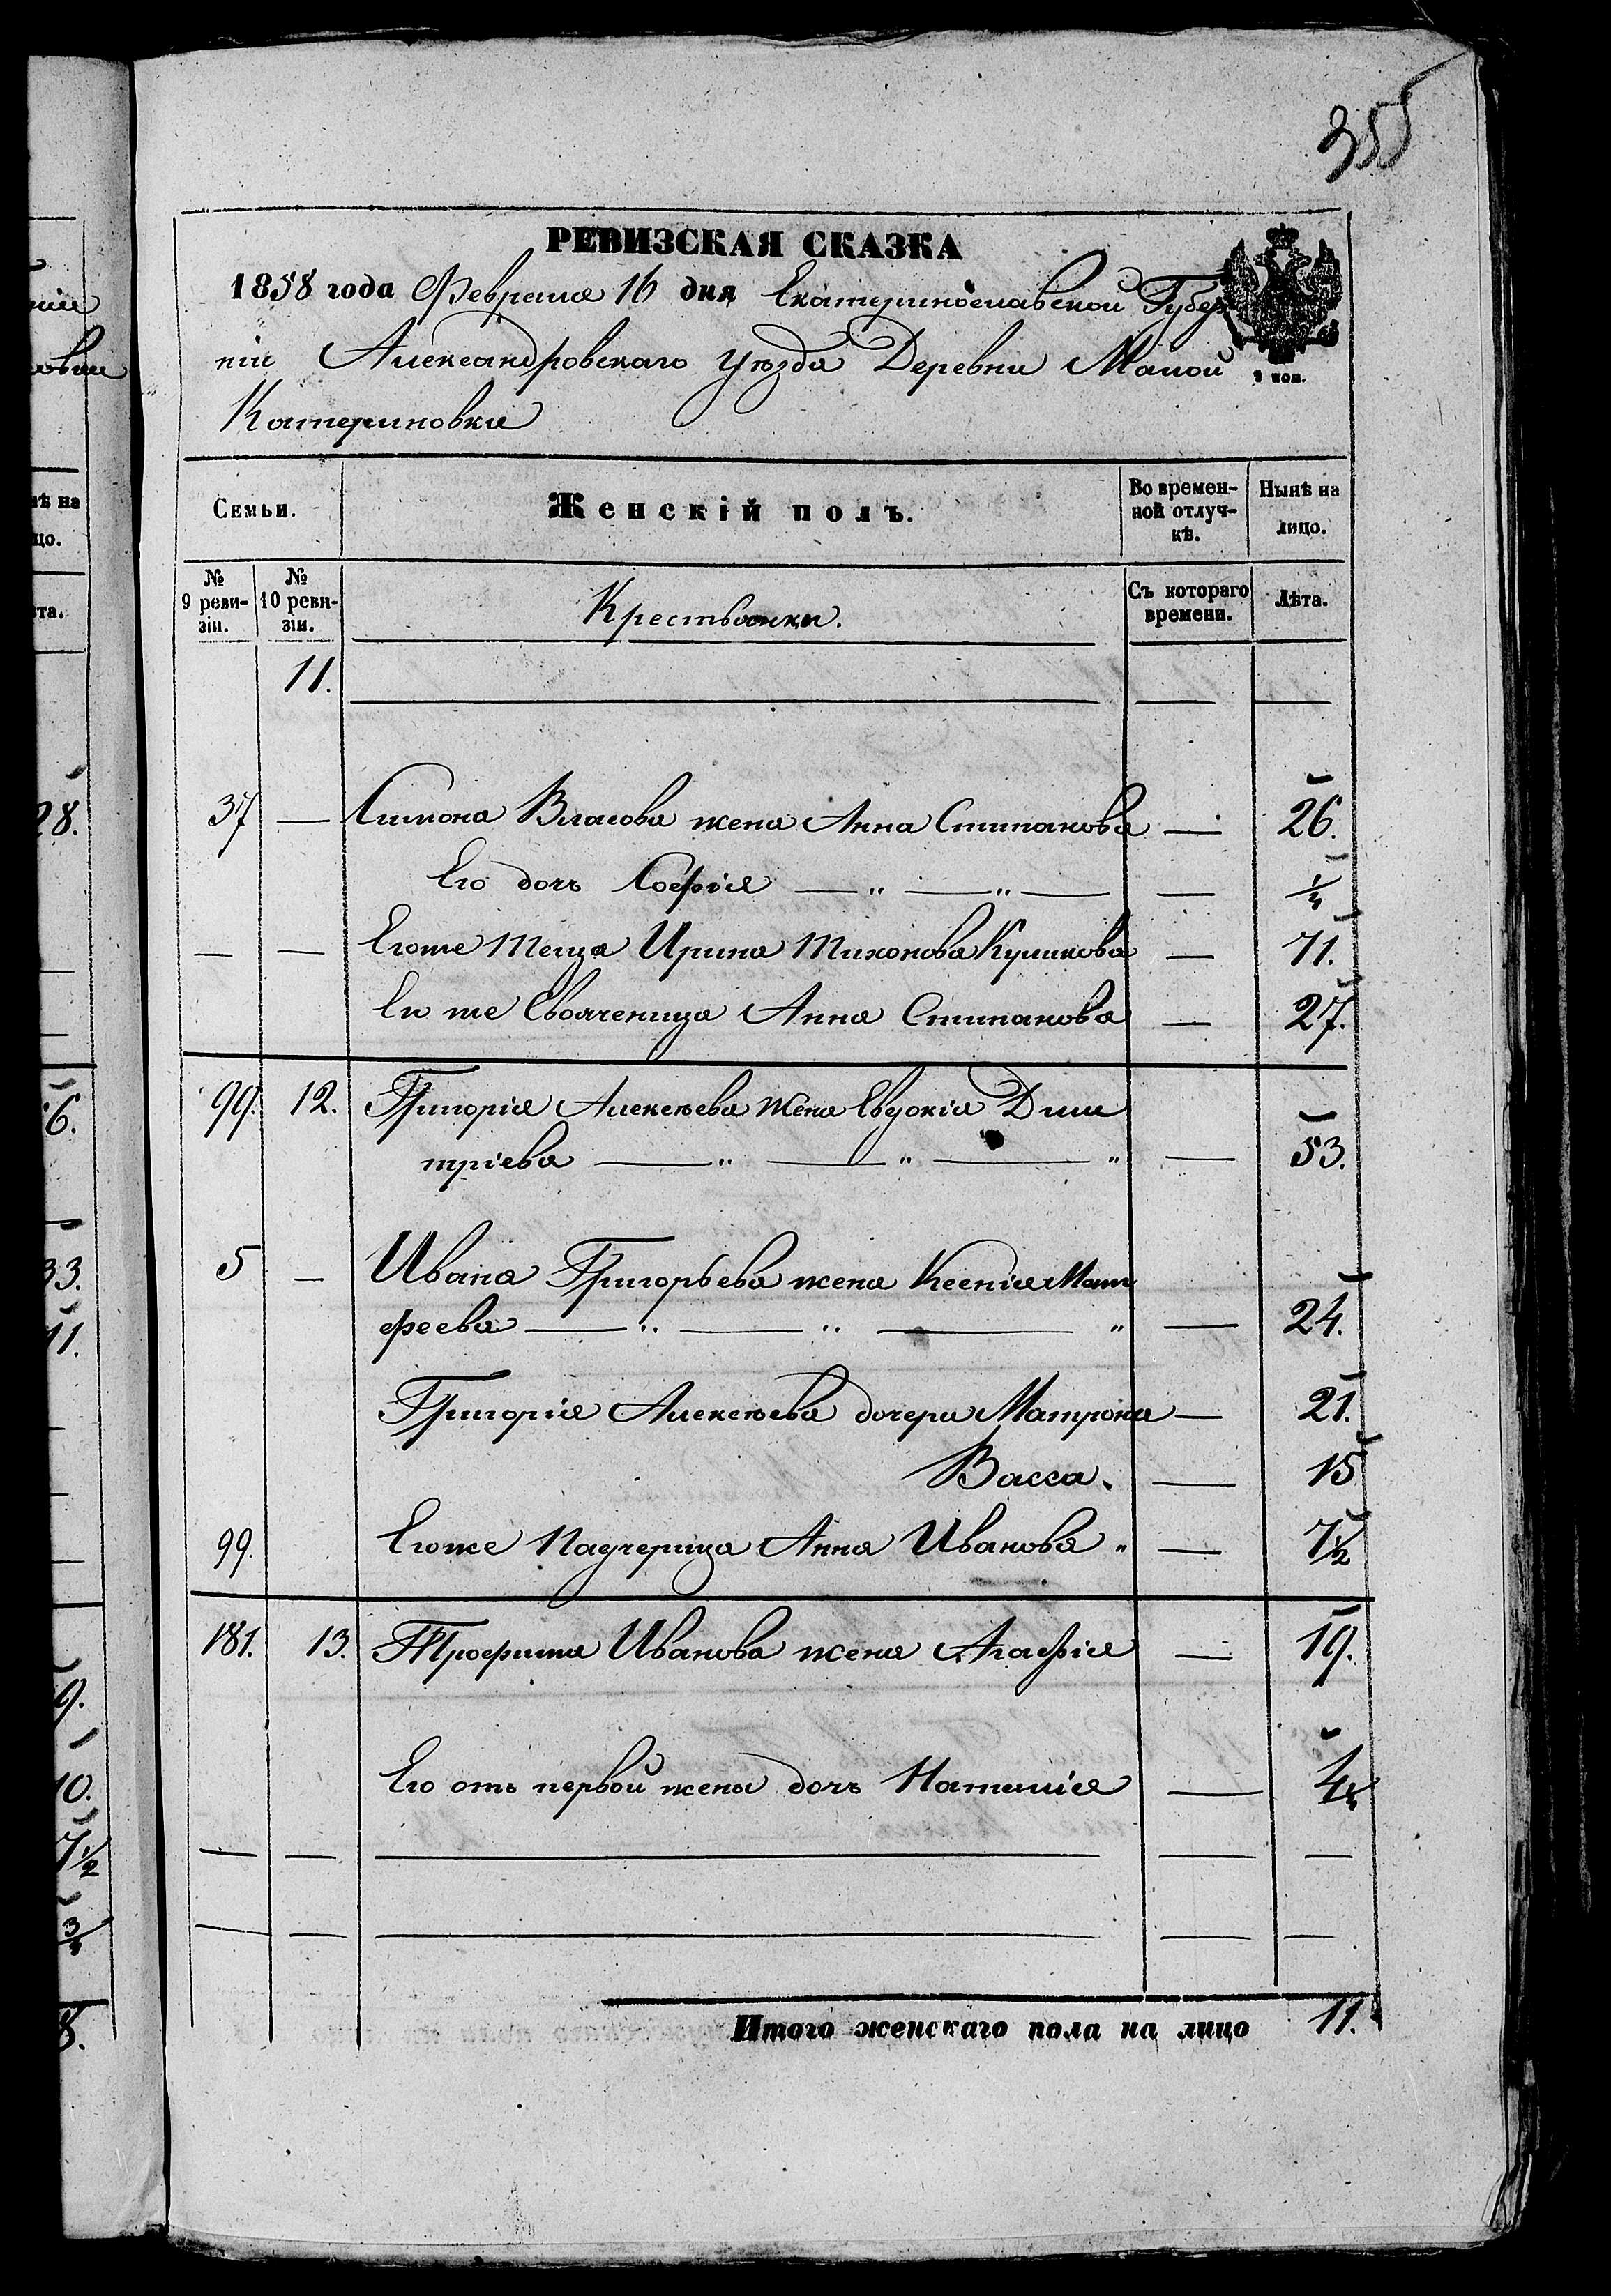 355
РЕВИЗСКАЯ СКАЗКА
1858 года Февраля 16 дня Екатеринославской Губер
ніи Александровскаго уѣзда Деревни Малой
Катериновки
1 коп.
Семьи. Женскій полъ. Во времен-
ной отлуч-
кѣ. Нынѣ на
лицо.
№
9 реви-
зіи. №
10 реви-
зіи. Крестьянки. Съ котораго
времени. Лѣта.
11.
37 — Симона Власова жена Анна Стипанова — 26.
Его дочь Софія — „ — „ — — 1/4
— — Егоже теща Ирина Тихонова Куликова — 71.
Ея же Свояченица Анна Стипанова — 27.
99. 12. Григорія Алексѣева жена Евдокія Дми
тріева — „ — „ — „ — 53.
5 — Ивана Григорьева жена Ксенія Мат
феева — „ — „ — „ — 24.
Григорія Алексѣева дочери Матрона — 21.
Васса. — 15
99. Егоже Падчерица Анна Иванова „ — 7 1/2
181. 13. Трофима Иванова жена Агафія — 19.
Его отъ первой жены дочь Наталія — 4 1/4
Итого женскаго пола на лицо 11.